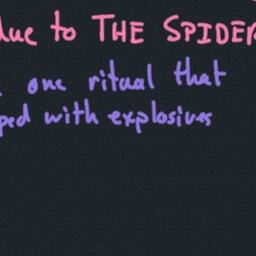 due to THE SPIDER
one ritual that
ped with explosives